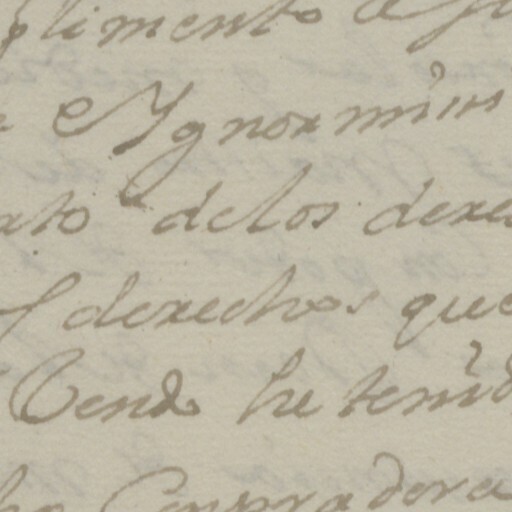 plimento a
e Ygnoxmius
ato delos dexe
derechos que
Vendo he tenid
Compradora